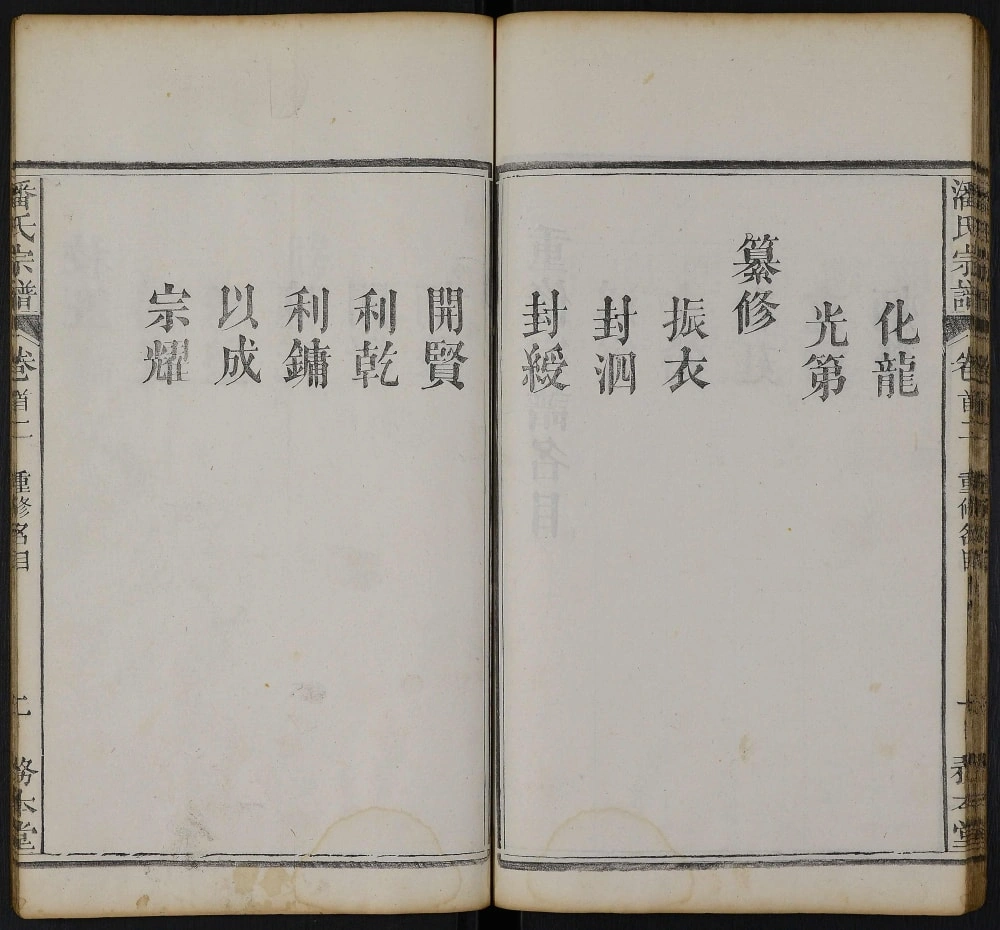 潘氏宗譜
卷首二
重修名目
務本堂
化龍
光第
纂修
振衣
封泗
封綬
開賢
利乾
利鏞
以成
宗耀
潘氏宗譜
卷首二
重修名目
二
務本堂